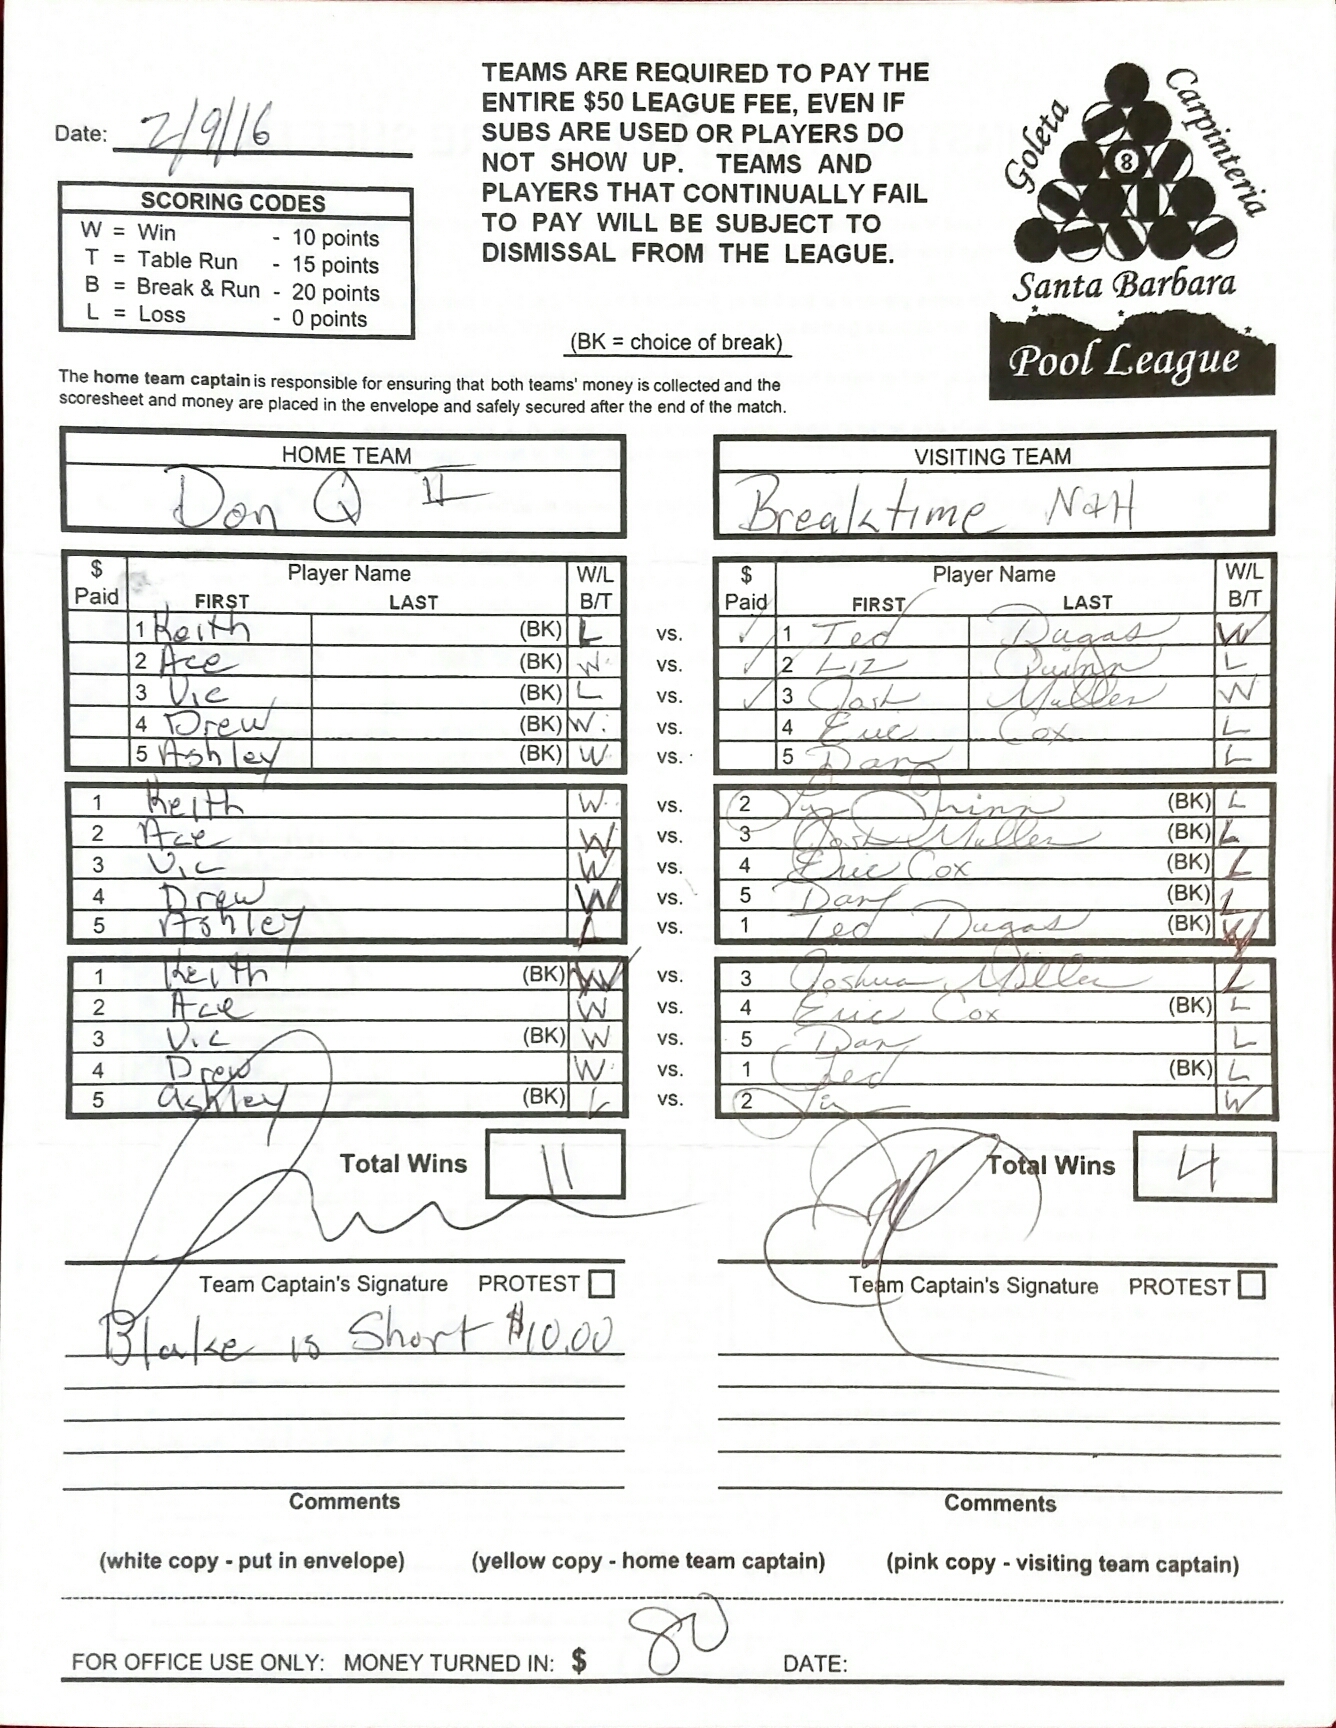 TEAMS ARE REQUIRED TO PAY THE
ENTIRE $50 LEAGUE FEE, EVEN IF
SUBS ARE USED OR PLAYERS DO
NOT SHOW UP. TEAMS AND
PLAYERS THAT CONTINUALLY FAIL
TO PAY WILL BE SUBJECT TO
DISMISSAL FROM THE LEAGUE.
Date: 2/9/16
SCORING CODES
W = Win - 10 points
T = Table Run - 15 points
B = Break & Run - 20 points
L = Loss - 0 points
(BK = choice of break)
Goleta
Carpinteria
8
Santa Barbara
Pool League
The home team captain is responsible for ensuring that both teams' money is collected and the
scoresheet and money are placed in the envelope and safely secured after the end of the match.
HOME TEAM VISITING TEAM
Don Q II Breaktime N&H
$ Paid Player Name FIRST LAST W/L B/T $ Paid Player Name FIRST LAST W/L B/T
1 Keith (BK) L vs. 1 Ted Dugas W
2 Ace (BK) W vs. 2 Liz Quinn L
3 Vic (BK) L vs. 3 Josh Mullen W
4 Drew (BK) W vs. 4 Eric Cox L
5 Ashley (BK) W vs. 5 Dan L
1 Keith W vs. 2 Quinn (BK) L
2 Ace W vs. 3 Josh Mullen (BK) L
3 Vic W vs. 4 Eric Cox (BK) L
4 Drew W vs. 5 Dan (BK) L
5 Ashley L vs. 1 Ted Dugas (BK) W
1 Keith (BK) W vs. 3 Joshua L
2 Ace W vs. 4 Eric Cox (BK) L
3 Vic (BK) W vs. 5 Dan L
4 Drew W vs. 1 Ted (BK) L
5 Ashley (BK) L vs. 2 W
Total Wins 11 Total Wins 4
Team Captain's Signature PROTEST Team Captain's Signature PROTEST
Blake is Short $10.00
Comments Comments
(white copy - put in envelope) (yellow copy - home team captain) (pink copy - visiting team captain)
FOR OFFICE USE ONLY: MONEY TURNED IN: $ 80 DATE: